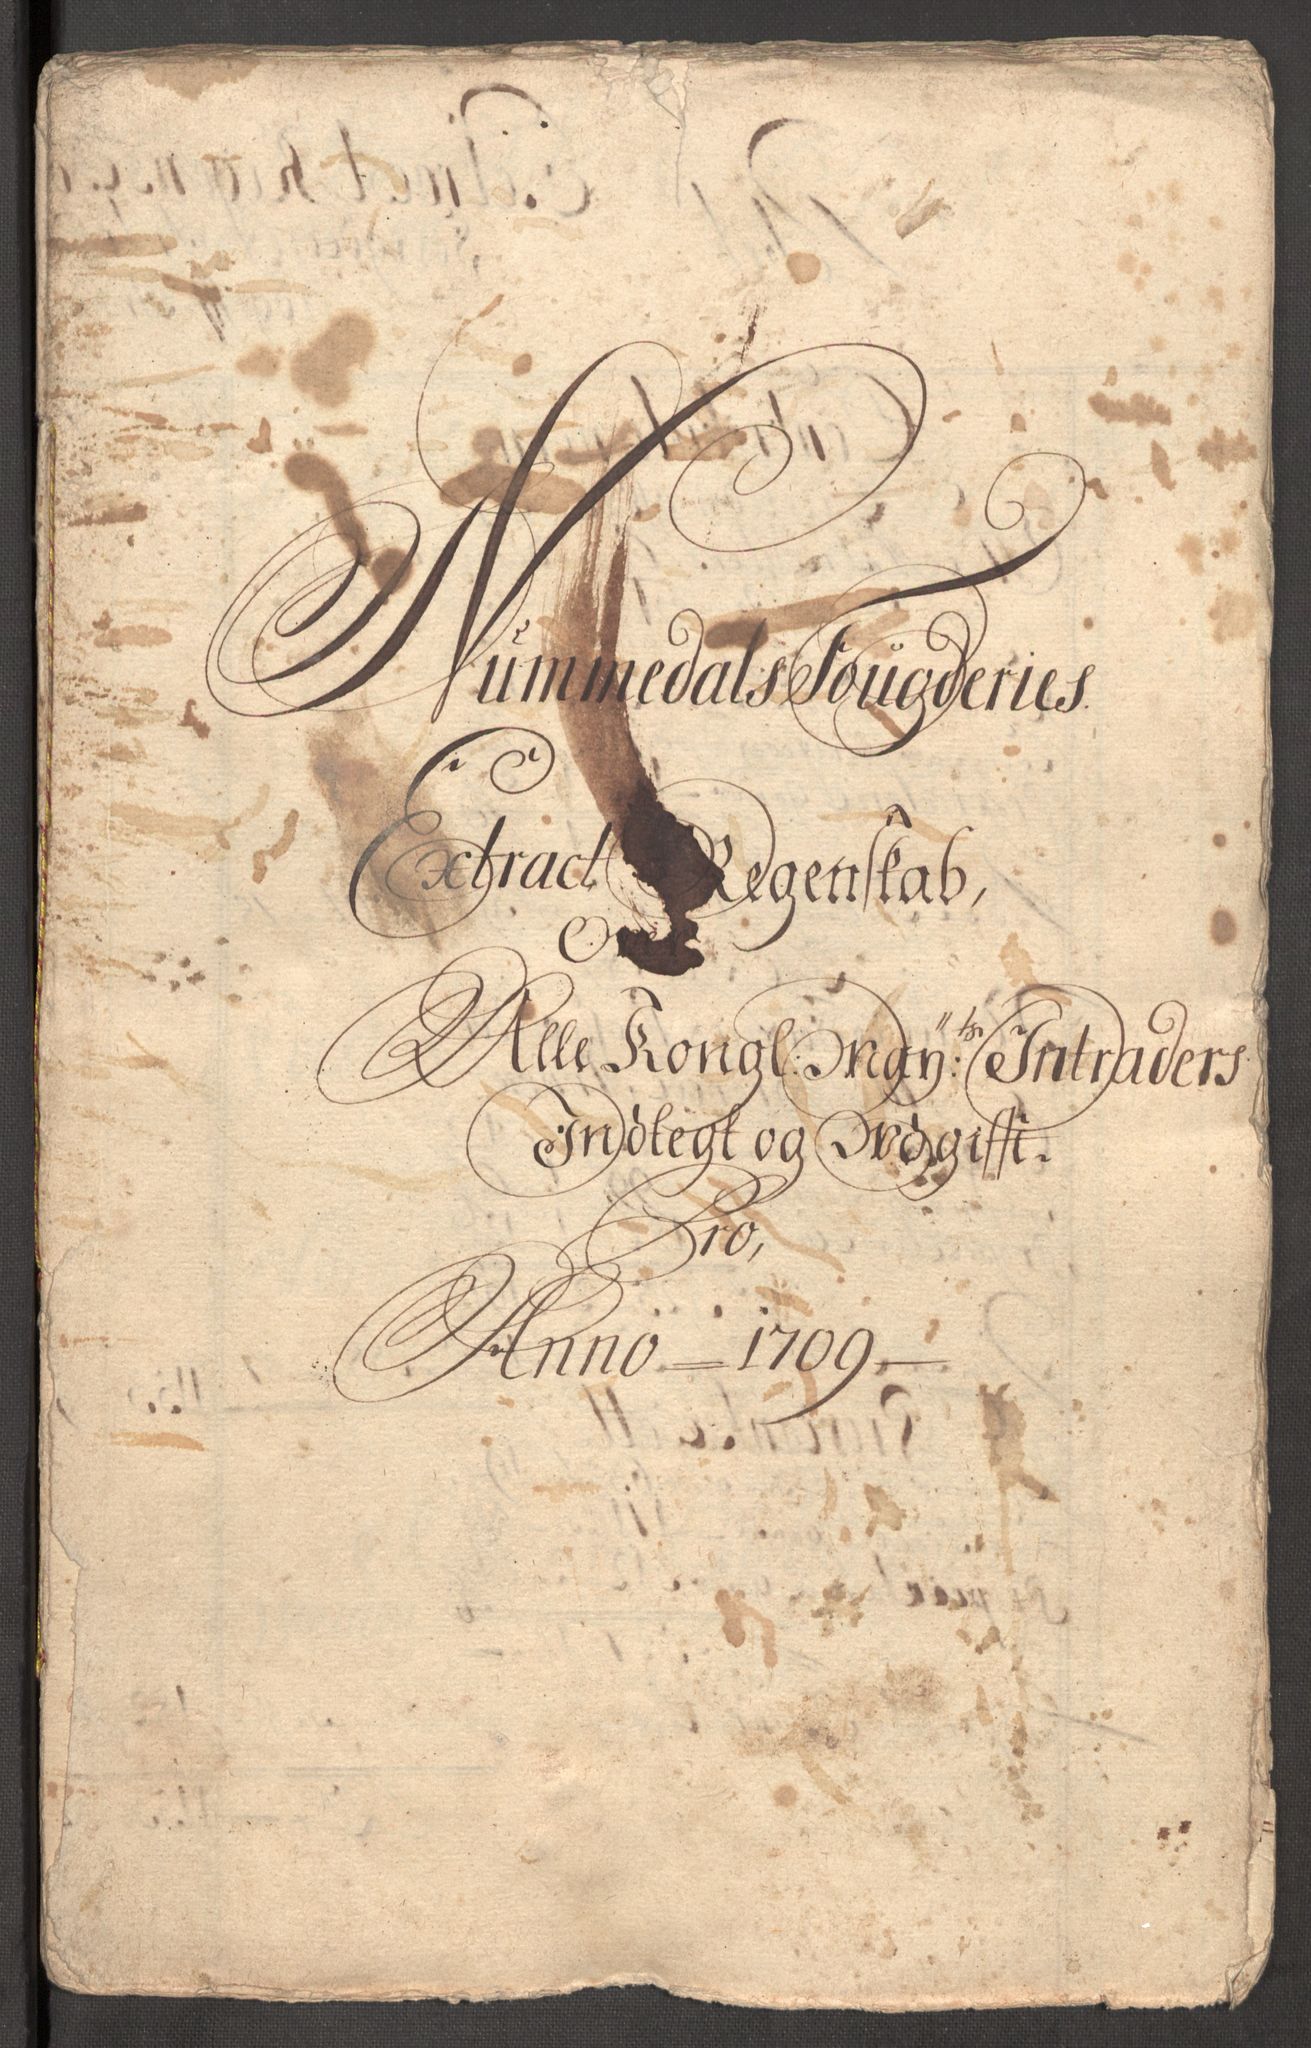 Nummedals Fougderies.
Extract Regenskab,
Over
Alle Kongl: May:ts Intraders
Indtegt og Wdgifft.
Pro,
Anno 1709